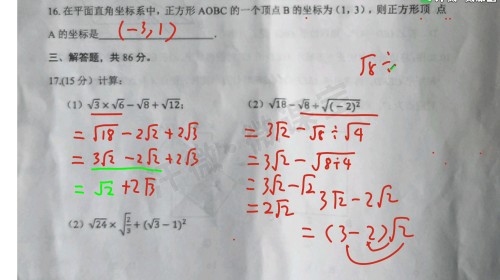 16. 在平面直角坐标系中，正方形 AOBC 的一个顶点 B 的坐标为（1，3），则正方形顶 点
A 的坐标是 (-3,1) .
三、解答题，共 86 分。
√8 ÷
17.(15 分）计算：
（1）√3×√6−√8+√12;
= √18 − 2√2 + 2√3
= 3√2 − 2√2 + 2√3
= √2 + 2√3
（2）√18−√8÷√(−2)²
= 3√2 − √8 ÷ √4
= 3√2 − √8÷4
= 3√2 − √2
= 2√2
3√2 − 2√2
= (3−2)√2
（2）√24×√2/3+(√3−1)²